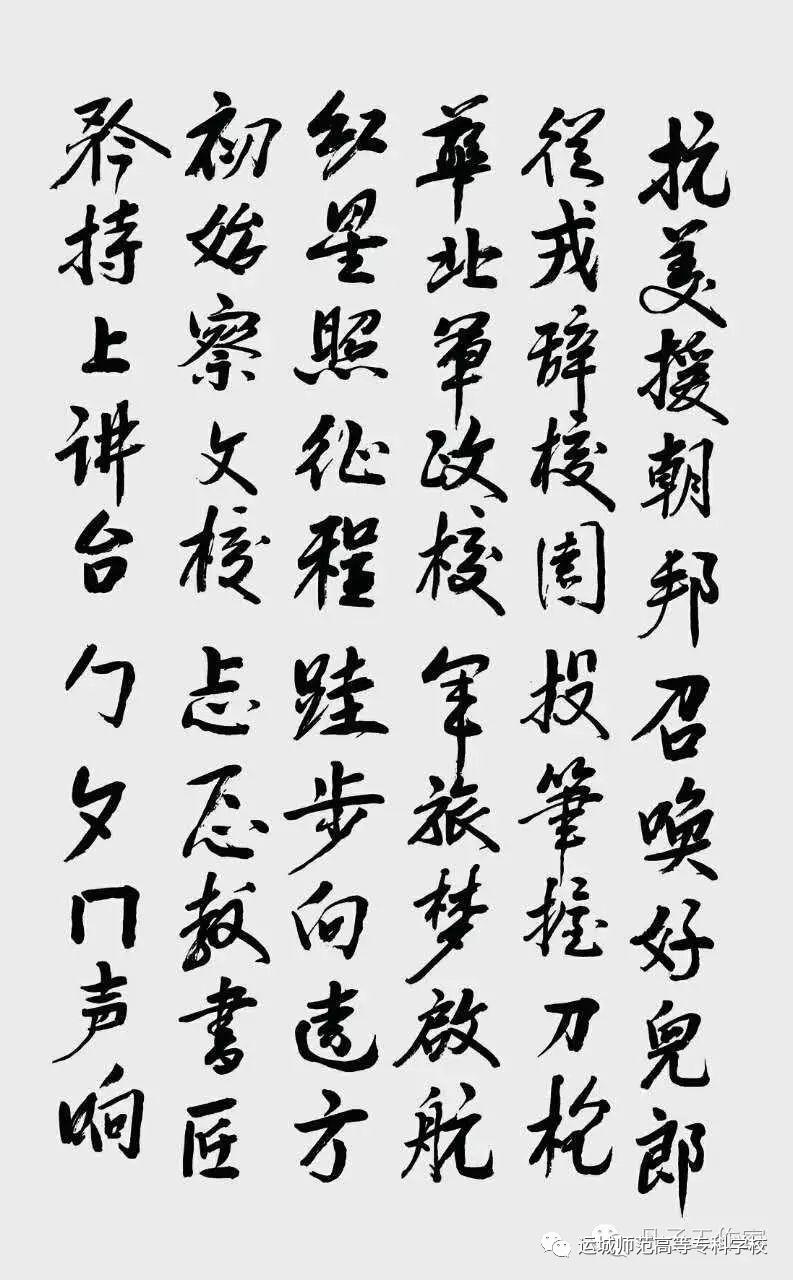 抗美援朝邦召唤好兒郎
從戎辞校園投筆握刀枪
華北軍政校軍旅梦啟航
红星照征程跬步向遠方
初始察文校忐忑教書匠
矜持上讲台勹夕门声响
运城师范高等专科学校